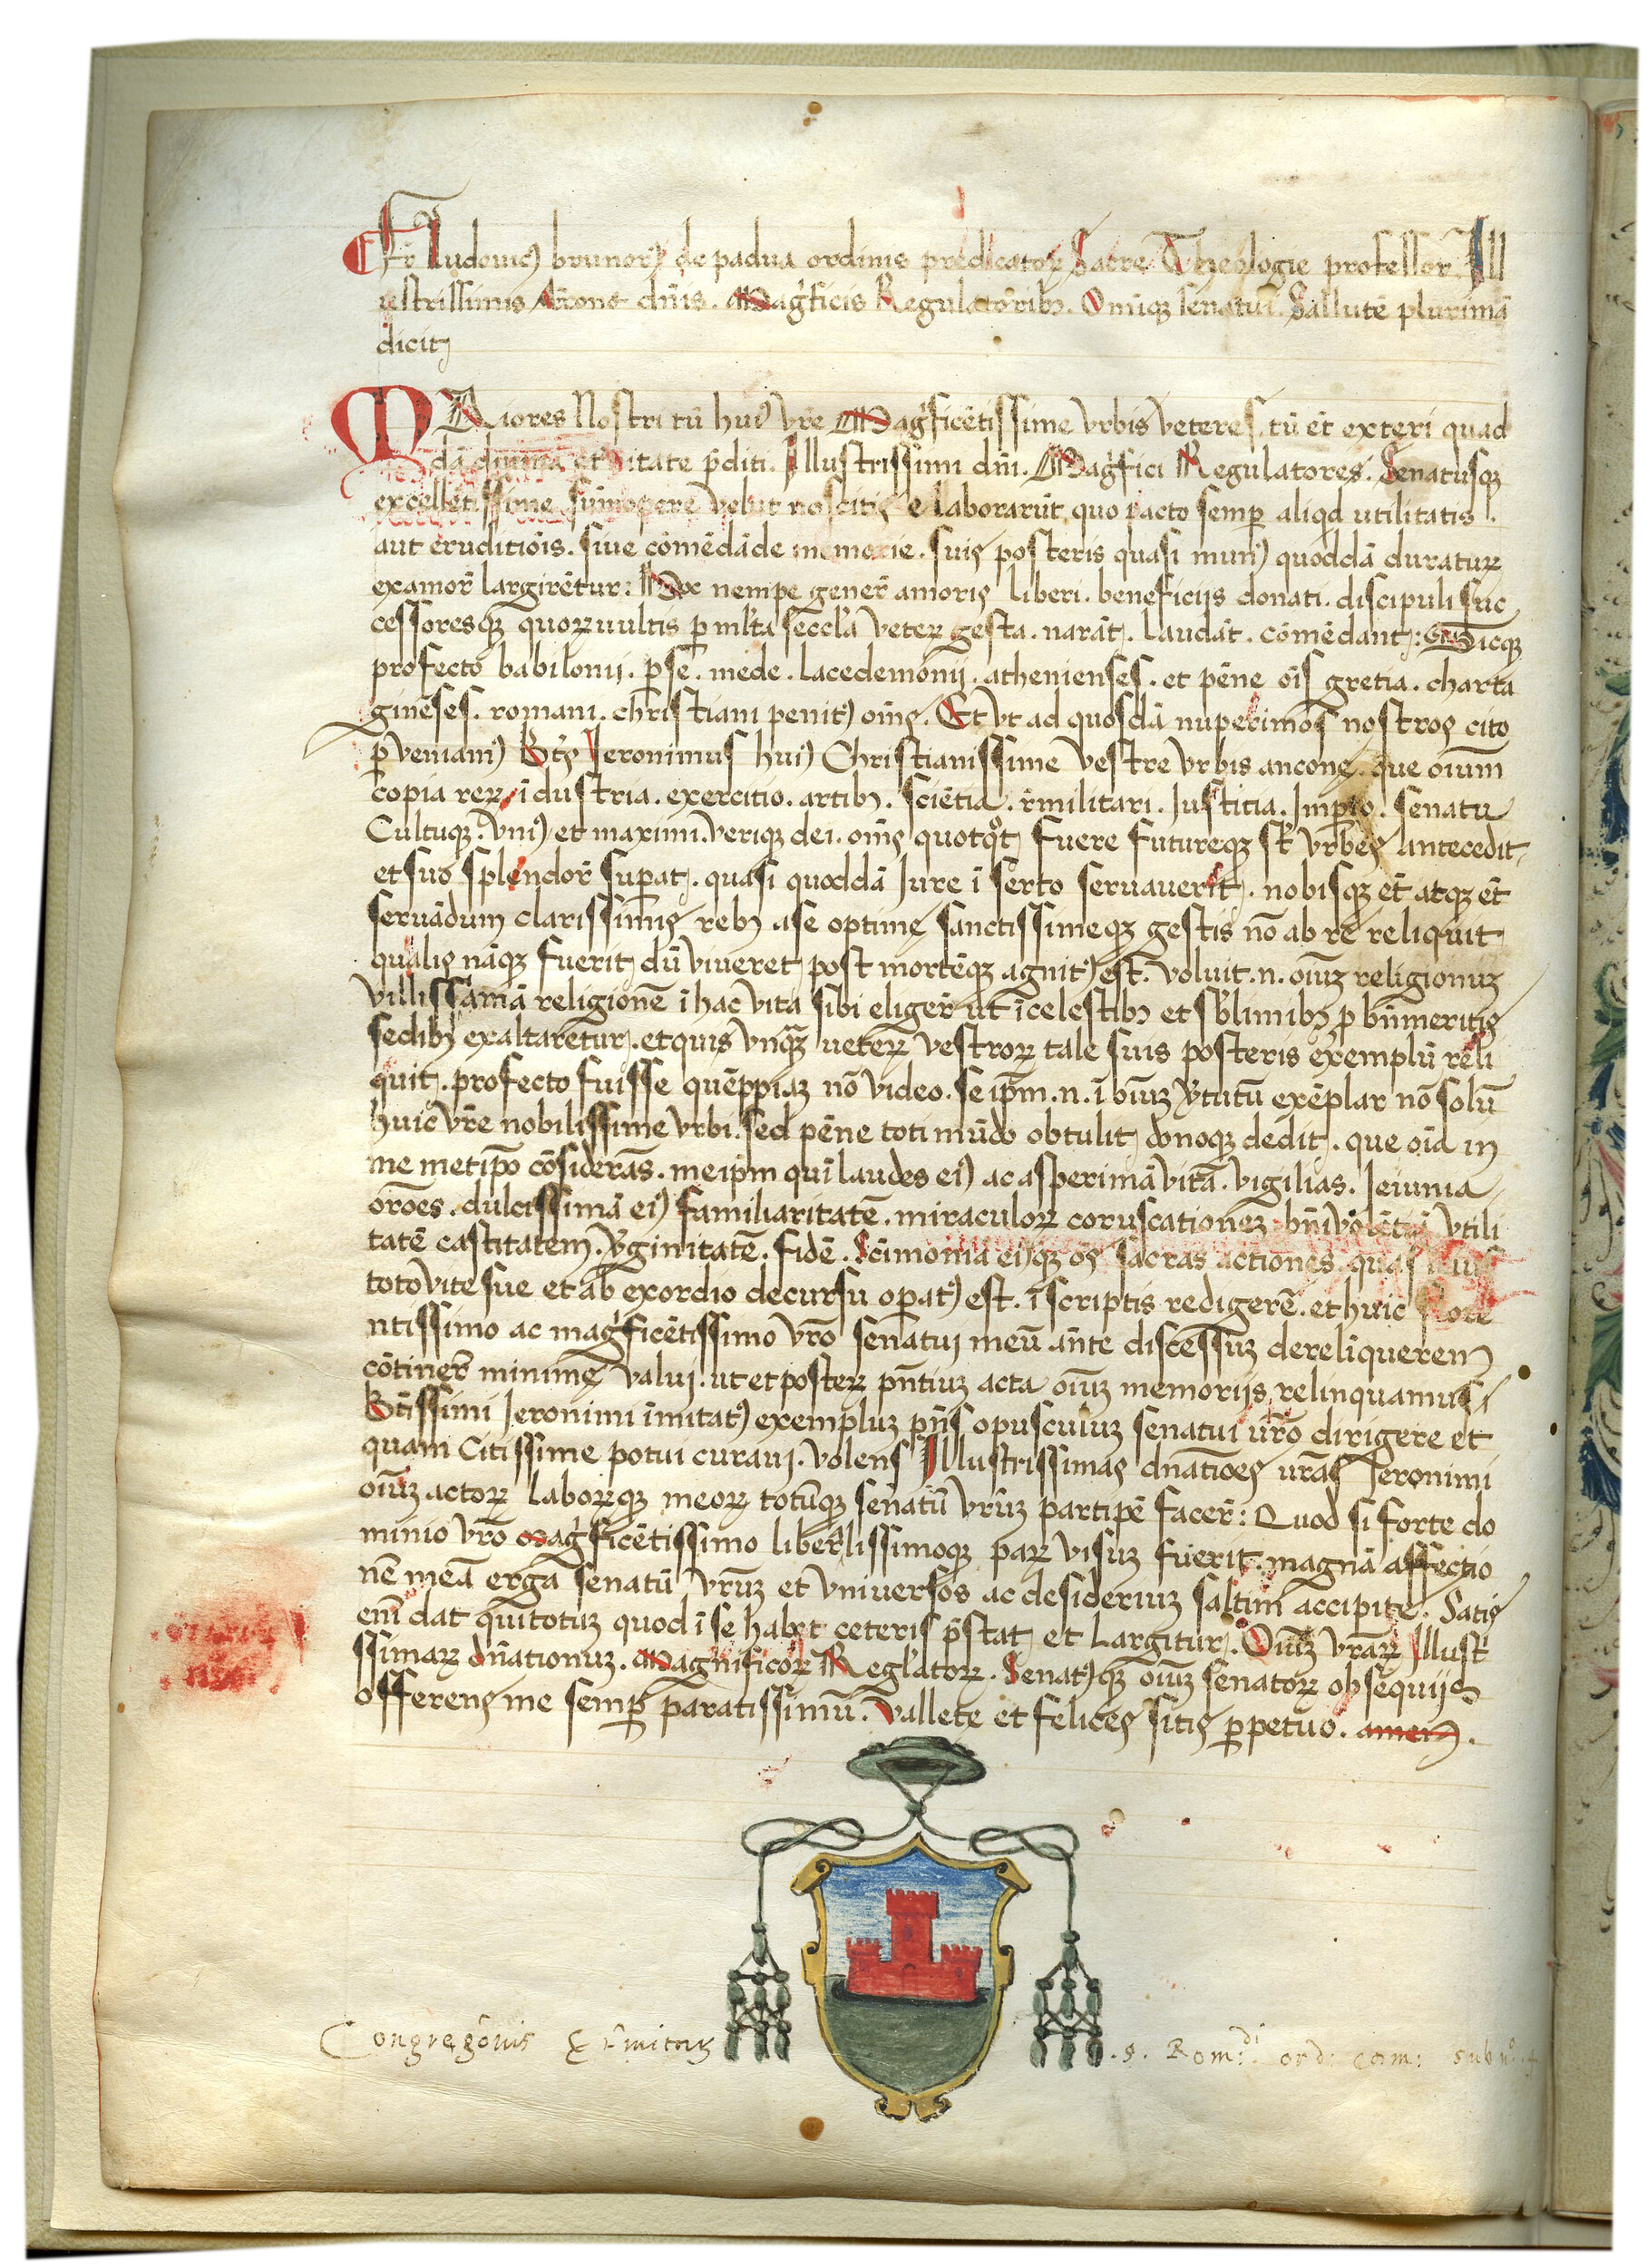 Fr̃ Ludouicꝰ brunorꝫ de padua ordinis predicatoꝝ Sacre Theologie professor. Ill
ustrissimis Ancone dñis. Mag̃ficis Regulatoribꝫ. Omniqꝫ senatui. Sallutē plurimā
dicit
MAiores Nostri tū huiꝰ vr̃e Mag̃ficētissime vrbis veteres. tū et̄ exteri quad
dā diuina et̄ itate p̄diti. Illustrissimi dñi. Mag̃fici Regulatores. Senatusqꝫ
excellētissime sūmopere velut noscitis elaborarūt quo pacto semꝑ aliqd utilitatis
aut eruditiōis. siue cōmēdāde memorie. suis posteris quasi munꝰ quoddā duraturꝝ
examor̄ largirētur: Mox nempe gener̄ amoris liberi. beneficijs donati. discipuli suc
cessoresqꝫ quoꝝ uultis ꝑ ml̃ta secl̃a veteꝝ gesta. narāt. laudāt. cōmēdant: Sicqꝫ
profecto babilonij. ꝑse. mede. lacedemonij. athenienses. et pēne oīs gretia. charta
ginēses. romani. christiani penitꝰ oīns. Et vt ad quosdā nuperimos nostros cito
ꝑueniamꝰ Bt̃s Ieronimus huiꝰ Christianissime vestre vrbis ancone. que oium̄
copia reꝝ īdustria. exercitio. artibꝫ. sciētia. r̄militari. Justitia. Imꝑio. senatu
Cultuqꝫ. vniꝰ et maximi. veriqꝫ dei. oīns quotqͦt fuere futureqꝫ st̄ vrbes antecedit
et suo splendor̄ suꝑat. quasi quoddā Jure ī serto seruauerit. nobisqꝫ et̄ atqꝫ et̄
seruādum clarissimis rebꝫ a se optime sanctissimeqꝫ gestis nō ab re reliquit
qualis nāqꝫ fuerit dū viueret post mortēqꝫ agnitꝰ est. voluit .n. oiuꝫ religionuꝫ
villissimā religionē ī hac vita sibi eliger̄ ut ī celestibꝫ et sb̄limibꝫ ꝓ bn̄meritis
sedibꝫ exaltaretur. et quis vnqꝫ̄ ueteꝝ vestroꝝ tale suis posteris exemplū reli
quit. profecto fuisse quēppiaꝫ nō video. se ip̄m .n. ī oiuꝫ v̄tutū exēplar nō solū
huic vr̃e nobilissime vrbi. sed pēne toti mūdo obtulit donoqꝫ dedit. que oīa in
me metip̄o cōsiderās. meip̄m quī laudes eiꝰ ac asperimā vitā. vigilias. Ieiunia
orōes. dulcissimā eiꝰ familiaritatē. miraculoꝝ coruscationeꝫ bn̄iuolētiā vtili
tatē castitatem. v̄ginitatē. fidē. Scīmoniā eiꝰqꝫ os̄ sacras actiones. quas
toto vite sue et ab exordio decursu oꝑatꝰ est. ī scriptis redigerē. et huic flore
ntissimo ac mag̃ficētissimo vr̃o senatui meū ante discessuꝫ derelīquerem
cōtiner̄ minime valui. ut et posteꝝ pn̄tiuꝫ acta oiuꝫ memorijs relinquamus
Bt̃issimi Ieronimi imitatꝰ exempluꝫ pn̄s opusculuꝫ senatui ur̃o dirigere et
quam Citissime potui curaui. volens Illustrissimas dnātiōes ur̃as Ieronimi
oiuꝫ actoꝝ laboꝝqꝫ meoꝝ totūqꝫ senatū vr̃uꝫ partipē facer̄: Quod si forte do
minio vr̃o mag̃ficētissimo liber̄lissimoqꝫ paꝝ visuꝫ fuerit. magnā affectio
nē meā erga senatū vr̃uꝫ et vniuersos ac desideriuꝫ saltim accipite. Satis
enī dat qui totuꝫ quod ī se habet ceteris p̄stat et Largitur. Oiuꝫ vr̃aꝝ Illust̄
ssimaꝝ dn̄ationuꝫ. Magnificoꝝ Regl̃atoꝝ. Senatꝰqꝫ oiuꝫ senatoꝝ obsequijs
offerens me semꝑ paratissimū. Vallete et felices sitis ꝑpetuo. amen.
Congregōnis Er̄mitaꝝ .s. Rom:di ord: cam: